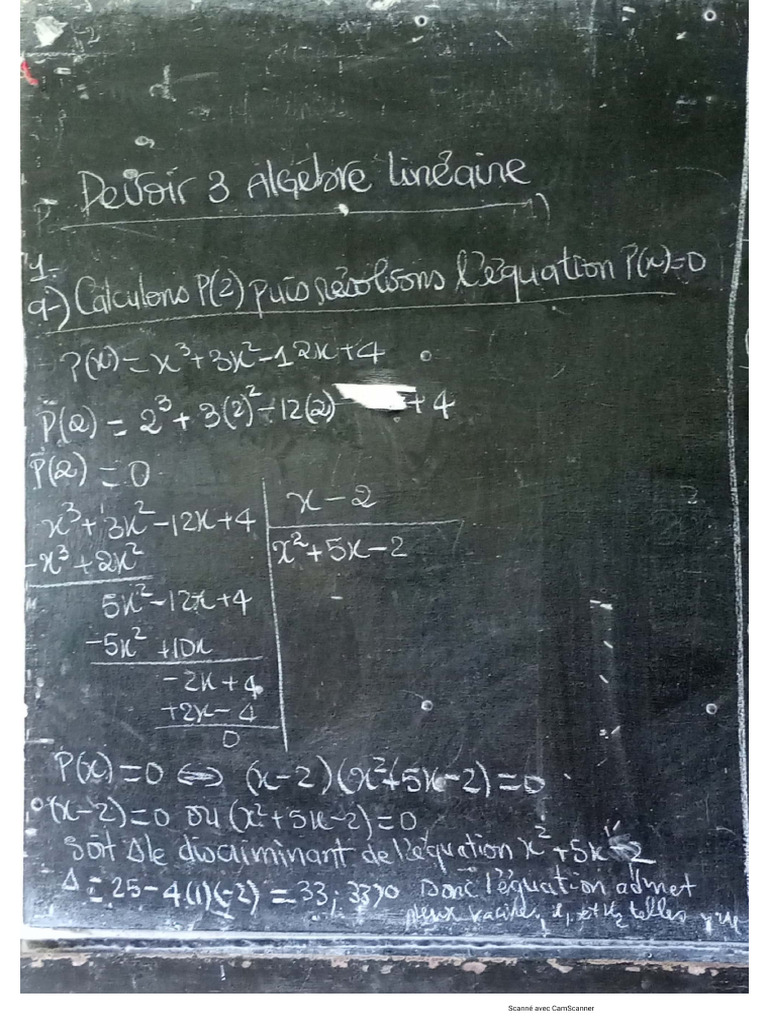 Devoir 3 Algèbre linéaire
1-
a-) Calculons P(2) puis résolvons l'équation P(x)=0
P(x)= x³+3x²-12x+4
P(2) = 2³+3(2)²-12(2) +4
P(2) = 0
x³+3x²-12x+4 | x-2
-x³+2x² | x²+5x-2
5x²-12x+4
-5x²+10x
-2x+4
+2x-4
0
P(x)=0 ⇔ (x-2)(x²+5x-2)=0
(x-2)=0 ou (x²+5x-2)=0
Soit Δ le discriminant de l'équation x²+5x-2
Δ = 25-4(1)(-2) = 33; 33>0 Donc l'équation admet
deux racines x₁ et x₂ telles que
Scanné avec CamScanner